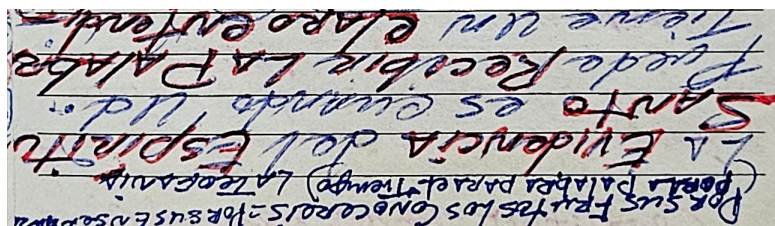 POR SUS FRUTOS LOS CONOCEREIS = POR SUS ENSEÑANZA
(POR LA PALABRA PARA EL TIEMPO) LA TEOFANIA
LA EVIDENCIA del ESPIRITU
SANTO es cuando Ud.
Puede RECibIR LA PALABR
Tiene un CLARO ENTENDI-